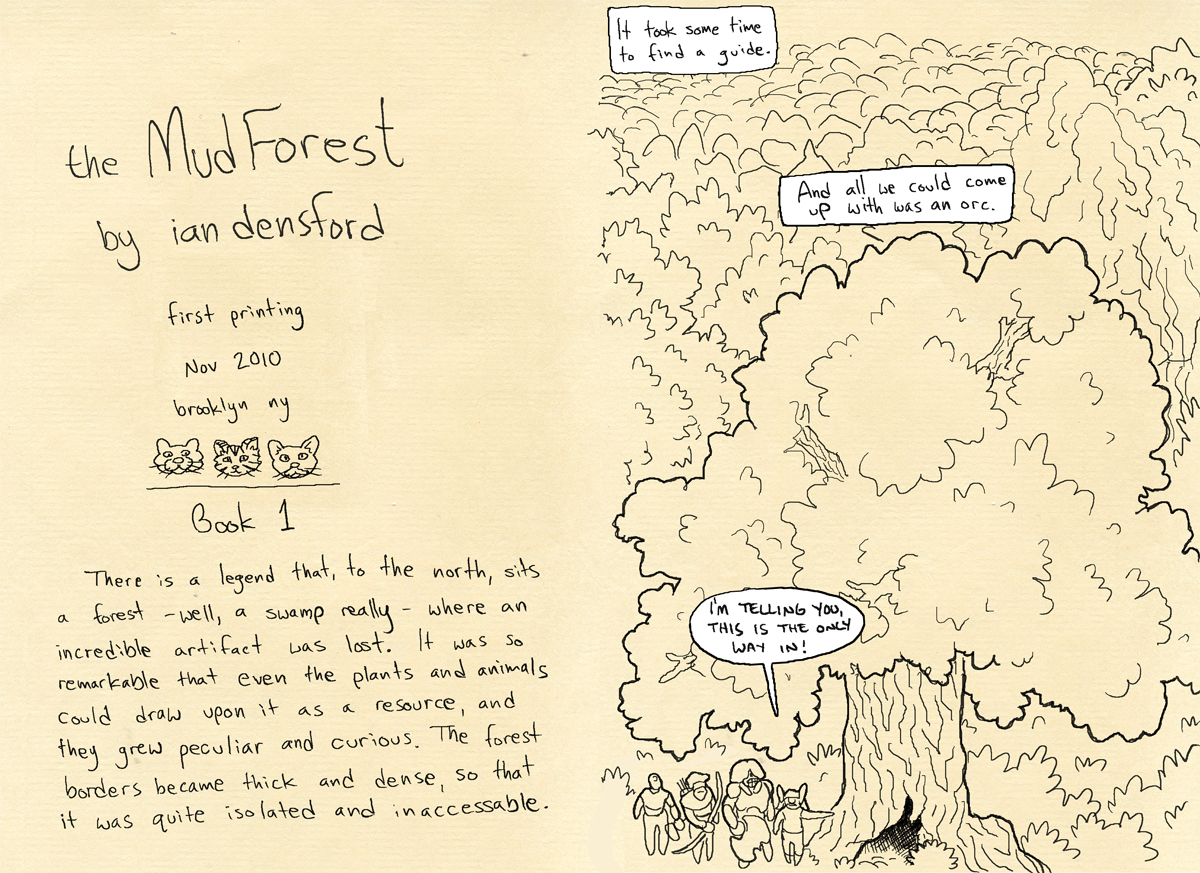 the MudForest
by ian densford
first printing
Nov 2010
brooklyn ny
Book 1
There is a legend that, to the north, sits
a forest - well, a swamp really - where an
incredible artifact was lost. It was so
remarkable that even the plants and animals
could draw upon it as a resource, and
they grew peculiar and curious. The forest
borders became thick and dense, so that
it was quite isolated and inaccessable.
It took some time
to find a guide.
And all we could come
up with was an orc.
I'M TELLING YOU,
THIS IS THE ONLY
WAY IN!